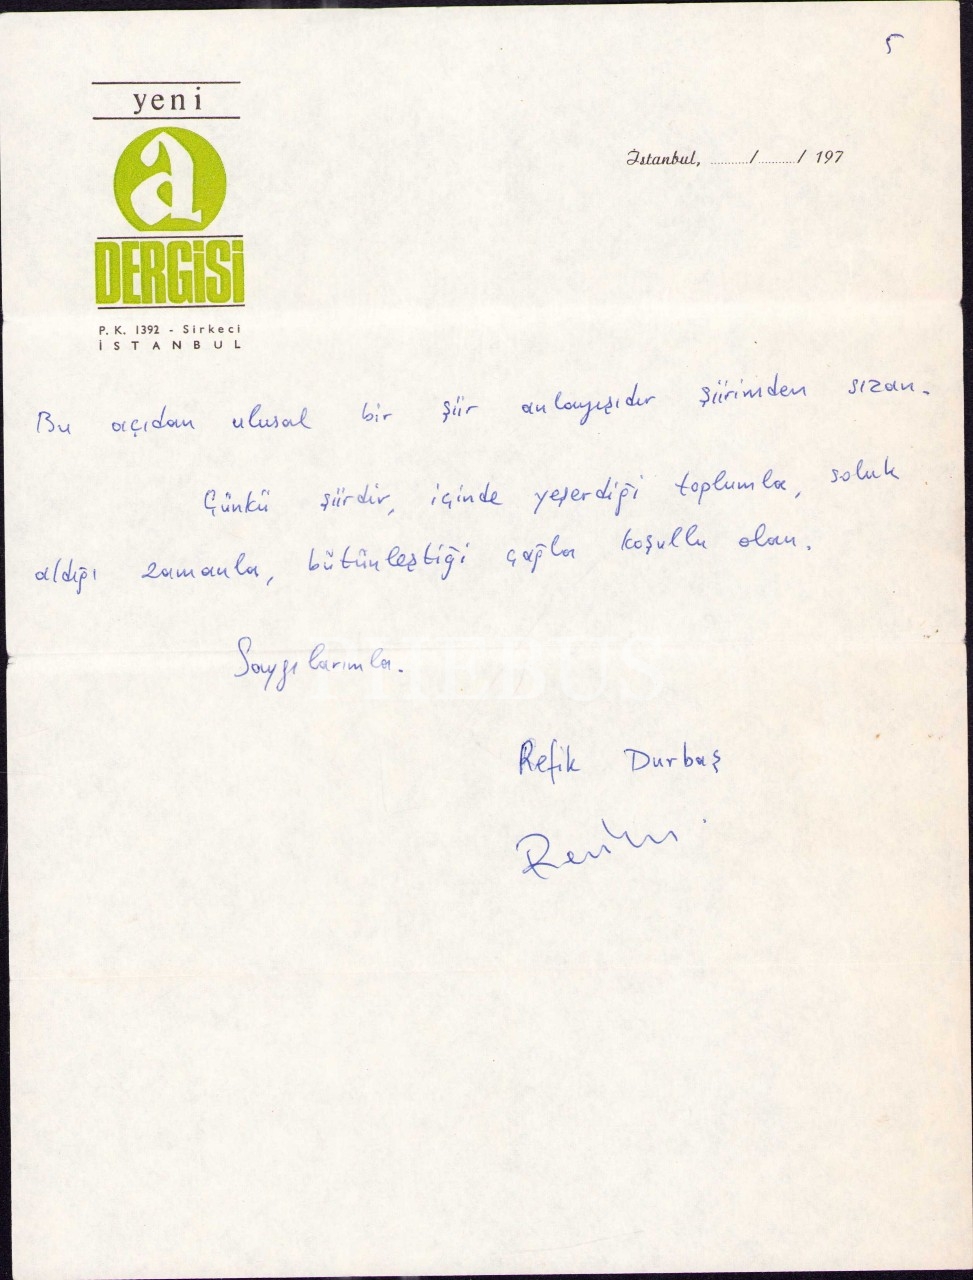 5
yeni
a
DERGİSİ
İstanbul, ........../........../ 197
P. K. 1392 - Sirkeci
İSTANBUL
Bu açıdan ulusal bir şiir anlayışıdır şiirimden sızan.
Çünkü şiirdir, içinde yeşerdiği toplumla, soluk
aldığı zamanla, bütünleştiği çağla koşullu olan.
Saygılarımla.
Refik Durbaş